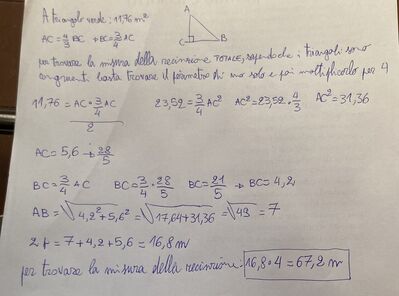 A triangolo verde: 11,76 m²
A
AC = 4/3 BC → BC = 3/4 AC
C B
per trovare la misura della recinzione TOTALE, sapendo che i triangoli sono
congruenti basta trovare il perimetro di uno solo e poi moltiplicarlo per 4
11,76 = AC · 3/4 AC / 2 23,52 = 3/4 AC² AC² = 23,52 · 4/3 AC² = 31,36
AC = 5,6 → 28/5
BC = 3/4 AC BC = 3/4 · 28/5 BC = 21/5 → BC = 4,2
AB = √4,2² + 5,6² = √17,64 + 31,36 = √49 = 7
2p = 7 + 4,2 + 5,6 = 16,8 m
per trovare la misura della recinzione: 16,8 · 4 = 67,2 m